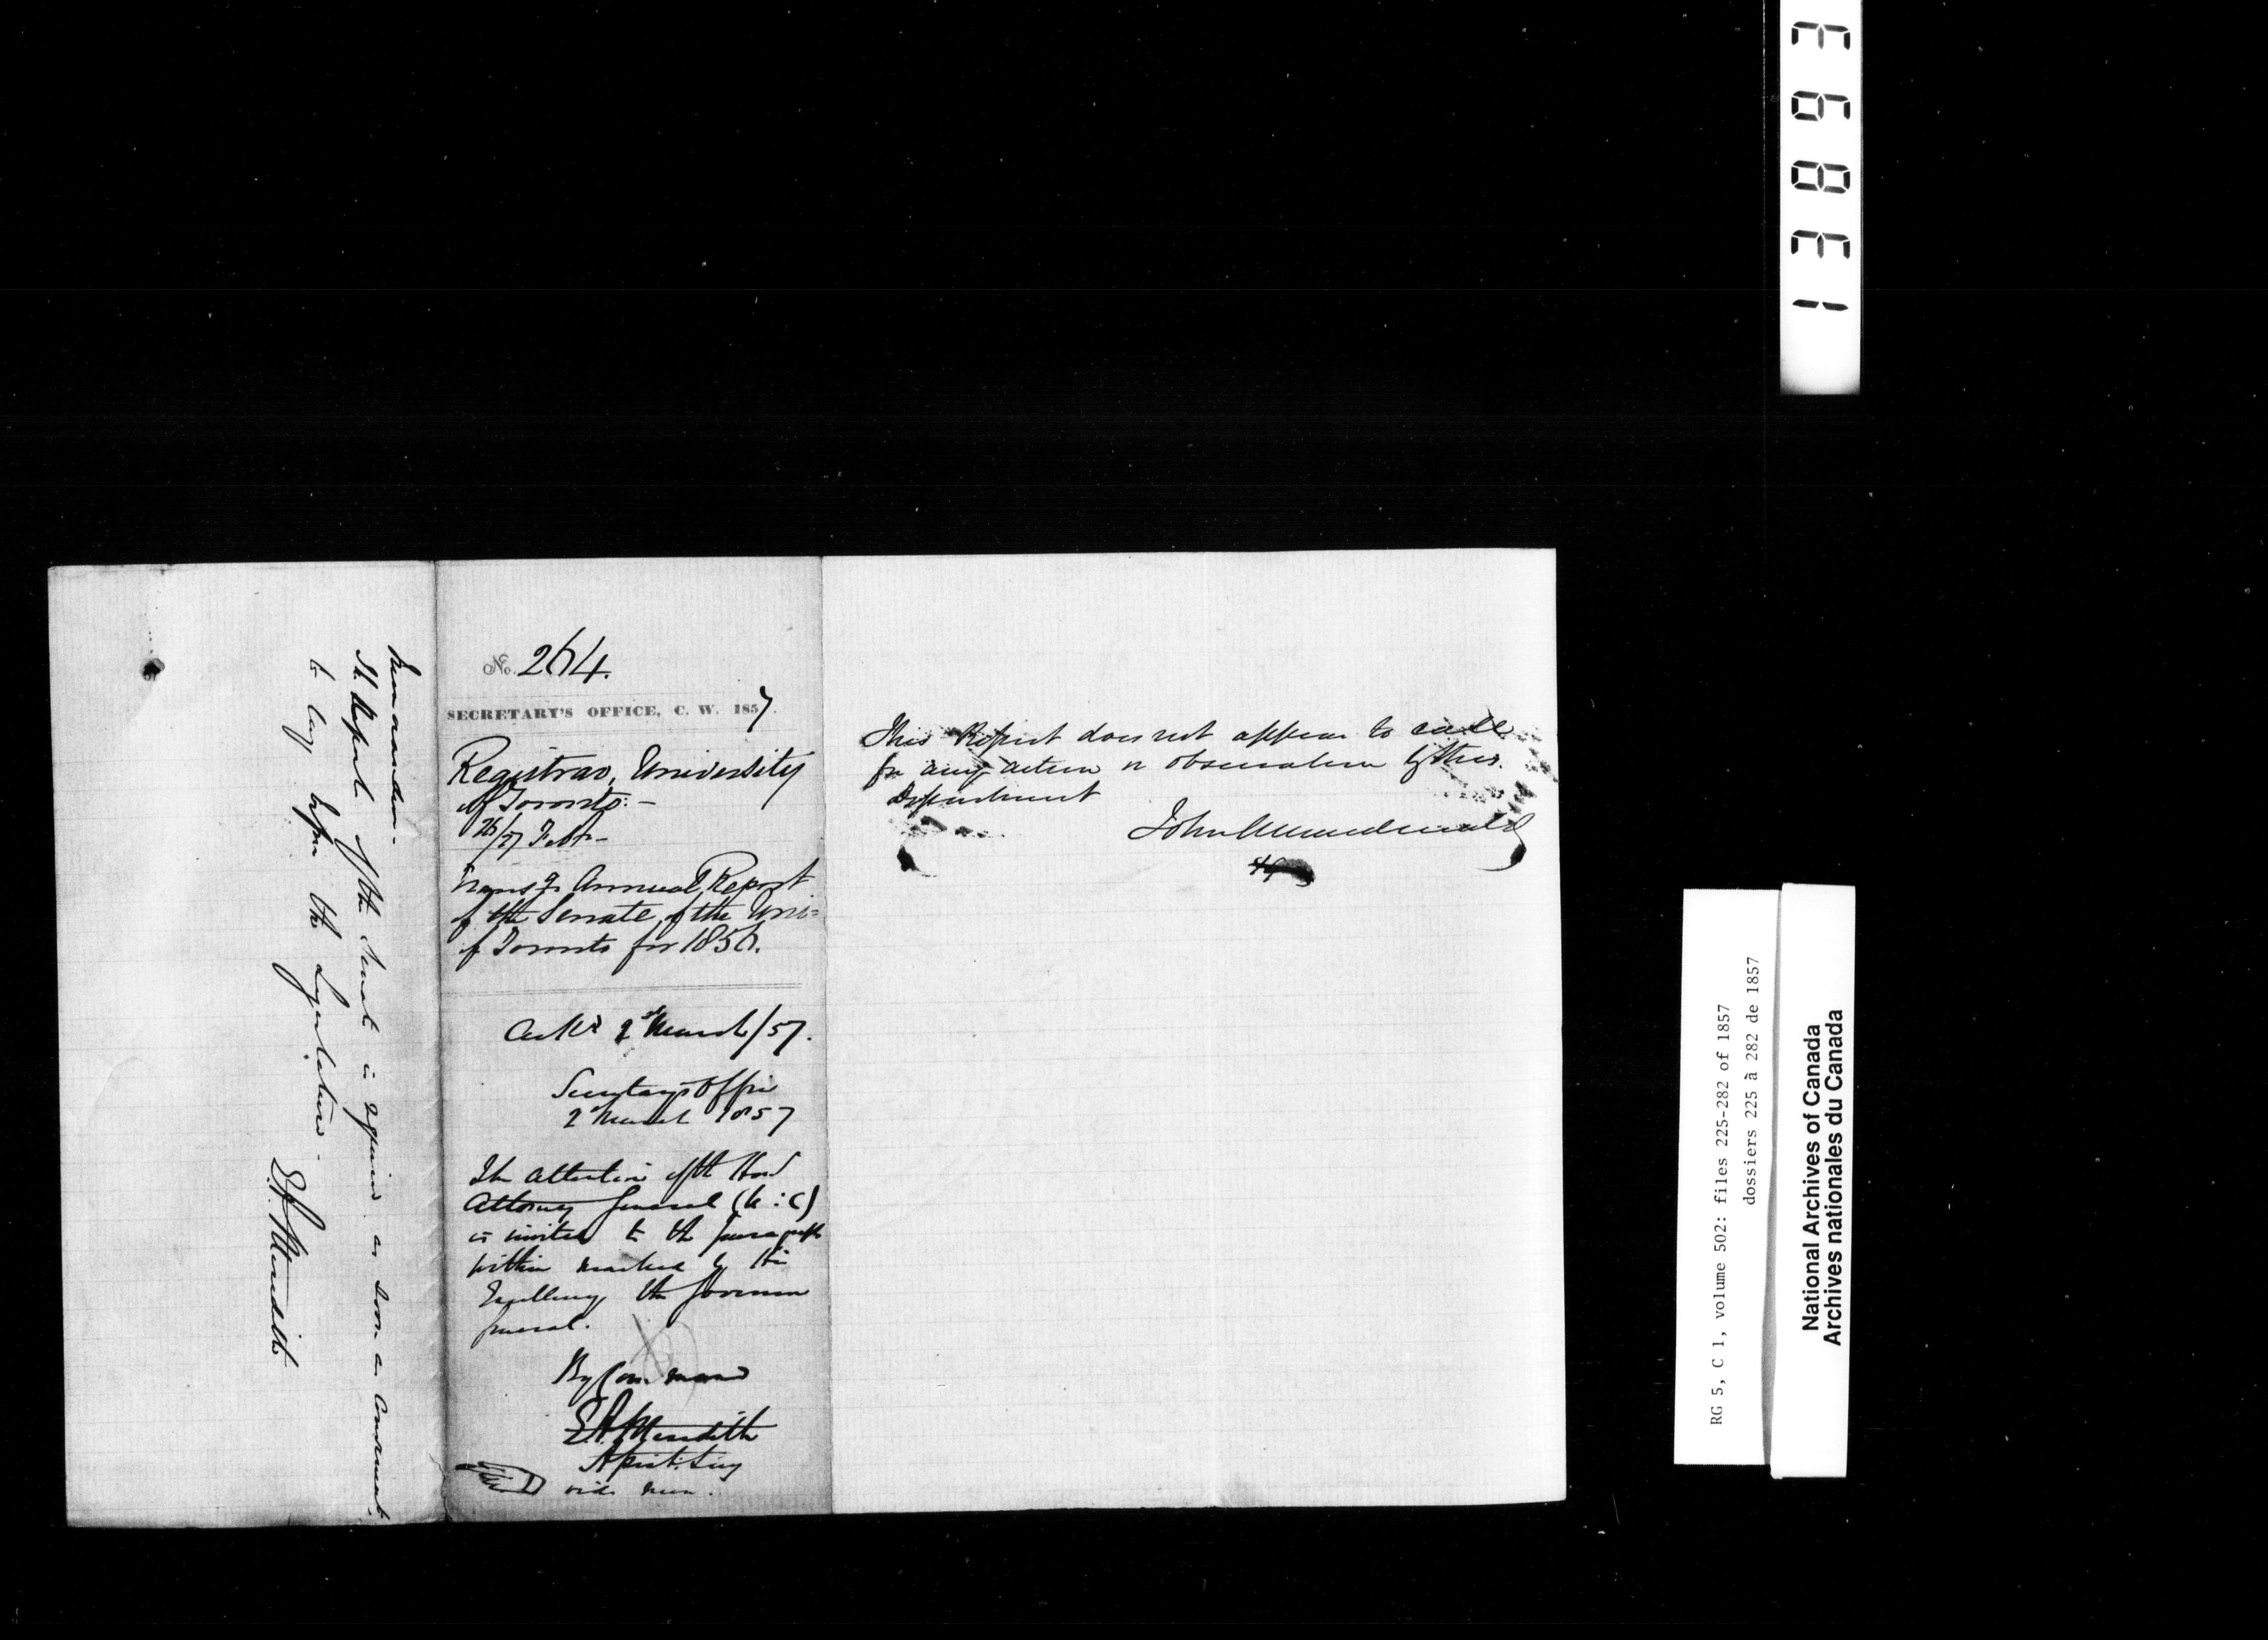 Memorandum -
The Report of the Senate is required as soon as convenient
to lay before the Legislature -
E.A. Meredith
No. 264.
SECRETARY'S OFFICE, C. W. 1857.
Registrar, University
of Toronto: -
26/27 Feby -
Transg Annual Report
of the Senate, of the Uni=
of Toronto for 1856.
Ackd 2d March/57.
Secretary's Office
2d March 1857
The attention of the Hon
Attorney General (U : C)
is invited to the paragraph
within marked by His
Excellency the Governor
General.
By Command
E.A. Meredith
Assist. Secy
vide mem.
This Report does not appear to call
for any action or observation by this
Department
John A Macdonald
AG
13893
RG 5, C 1, volume 502: files 225-282 of 1857
dossiers 225 à 282 de 1857
National Archives of Canada
Archives nationales du Canada